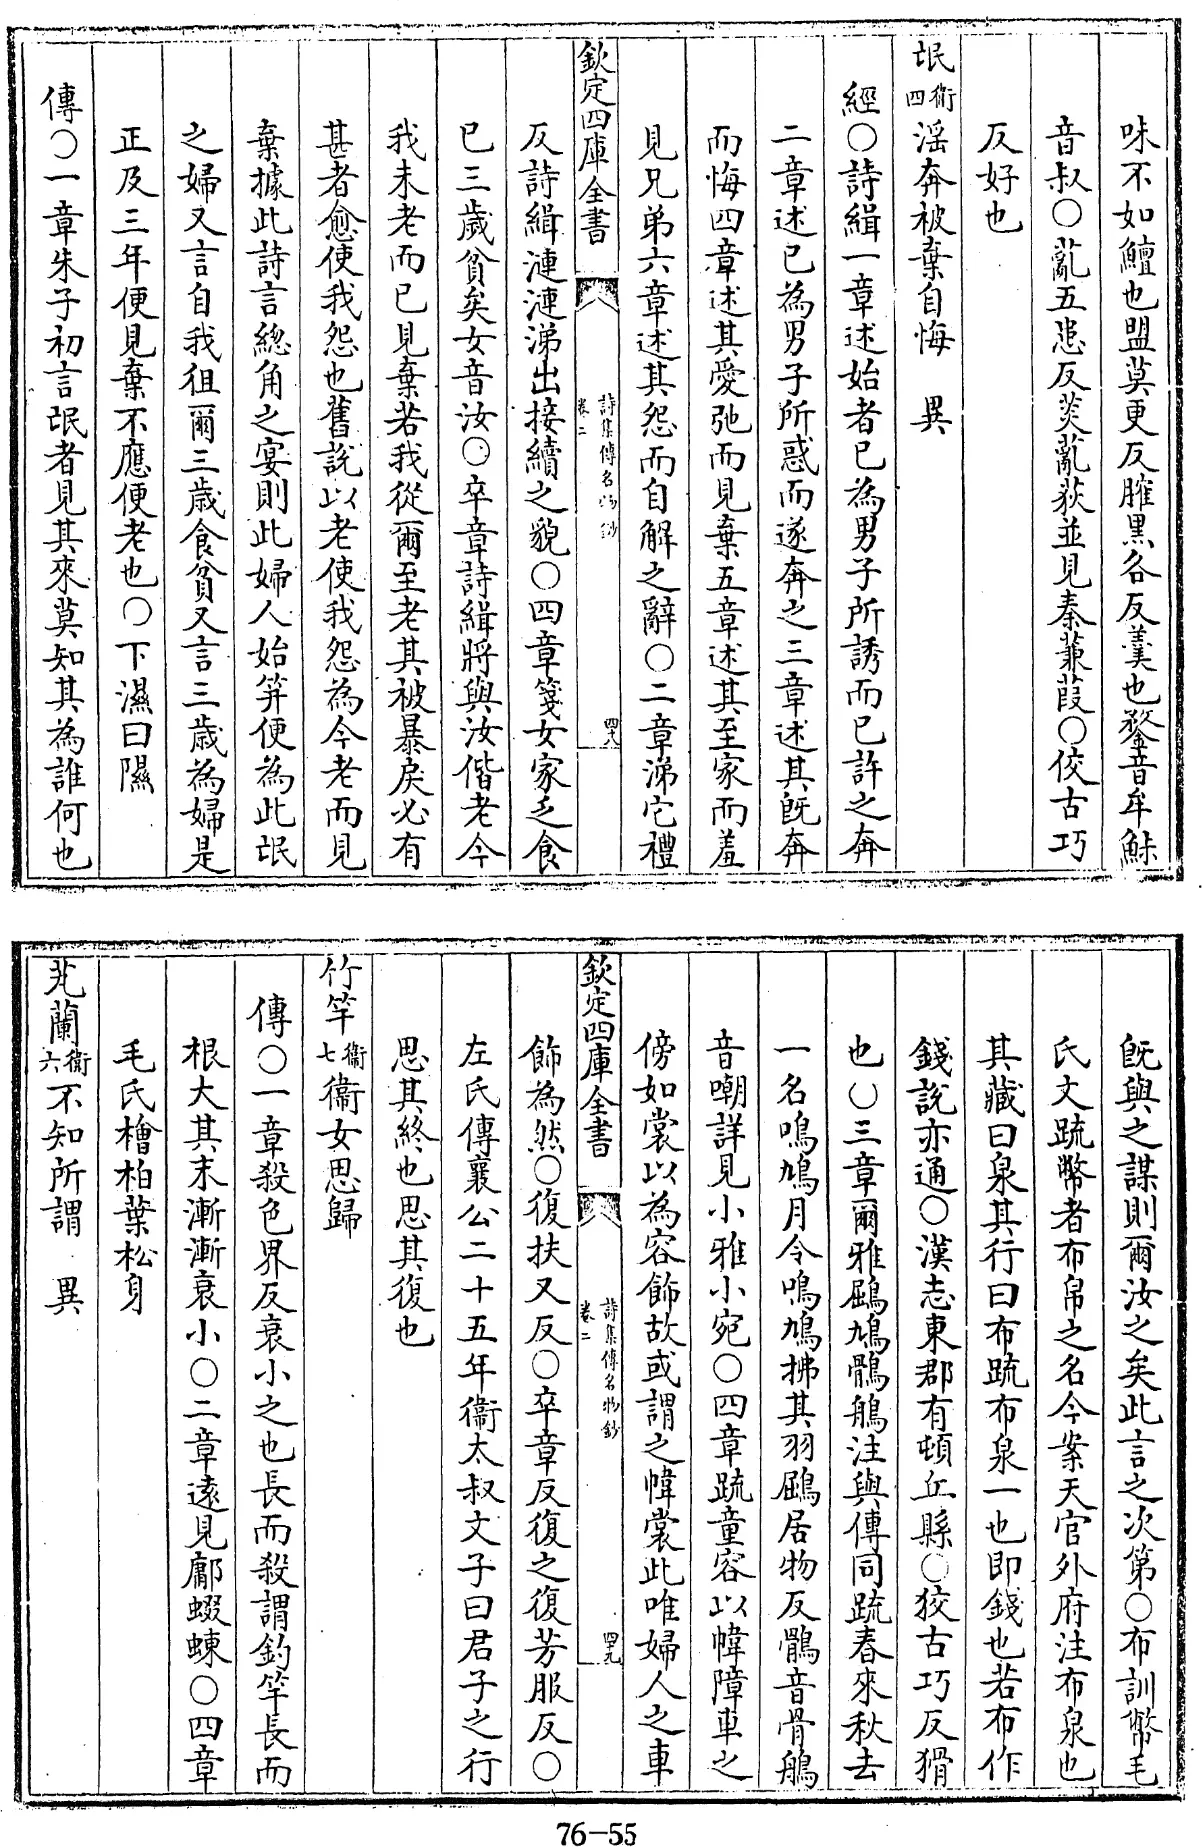 味不如鱣也盟莫更反臛黑各反羹也鍪音牟鮇
音叔○薍五患反菼薍荻並見秦蒹葭○佼古巧
反好也
氓衛四淫奔被棄自悔　異
經○詩緝一章述始者已為男子所誘而已許之奔
二章述已為男子所惑而遂奔之三章述其既奔
而悔四章述其愛弛而見棄五章述其至家而羞
見兄弟六章述其怨而自解之辭○二章涕它禮
欽定四庫全書　詩集傳名物鈔　卷二　四十八
反詩緝漣漣涕出接續之貌○四章箋女家乏食
已三歲貧矣女音汝○卒章詩緝將與汝偕老今
我未老而已見棄若我從爾至老其被暴戾必有
甚者愈使我怨也舊說以老使我怨為今老而見
棄據此詩言緫角之宴則此婦人始笄便為此氓
之婦又言自我徂爾三歲食貧又言三歲為婦是
正及三年便見棄不應便老也○下濕曰隰
傳○一章朱子初言氓者見其來莫知其為誰何也
既與之謀則爾汝之矣此言之次第○布訓幣毛
氏文疏幣者布帛之名今案天官外府注布泉也
其藏曰泉其行曰布疏布泉一也即錢也若布作
錢說亦通○漢志東郡有頓丘縣○狡古巧反猾
也○三章爾雅鶌鳩鶻鵃注與傳同疏春來秋去
一名鳴鳩月令鳴鳩拂其羽鶌居物反鶻音骨鵃
音嘲詳見小雅小宛○四章疏童容以幃障車之
傍如裳以為容飾故或謂之幃裳此唯婦人之車
欽定四庫全書　詩集傳名物鈔　卷二　四十九
飾為然○復扶又反○卒章反復之復芳服反○
左氏傳襄公二十五年衞太叔文子曰君子之行
思其終也思其復也
竹竿衞七衞女思歸
傳○一章殺色界反衰小之也長而殺謂釣竿長而
根大其末漸漸衰小○二章逺見鄘蝃蝀○四章
毛氏檜柏葉松身
芄蘭衞六不知所謂　異
76-55